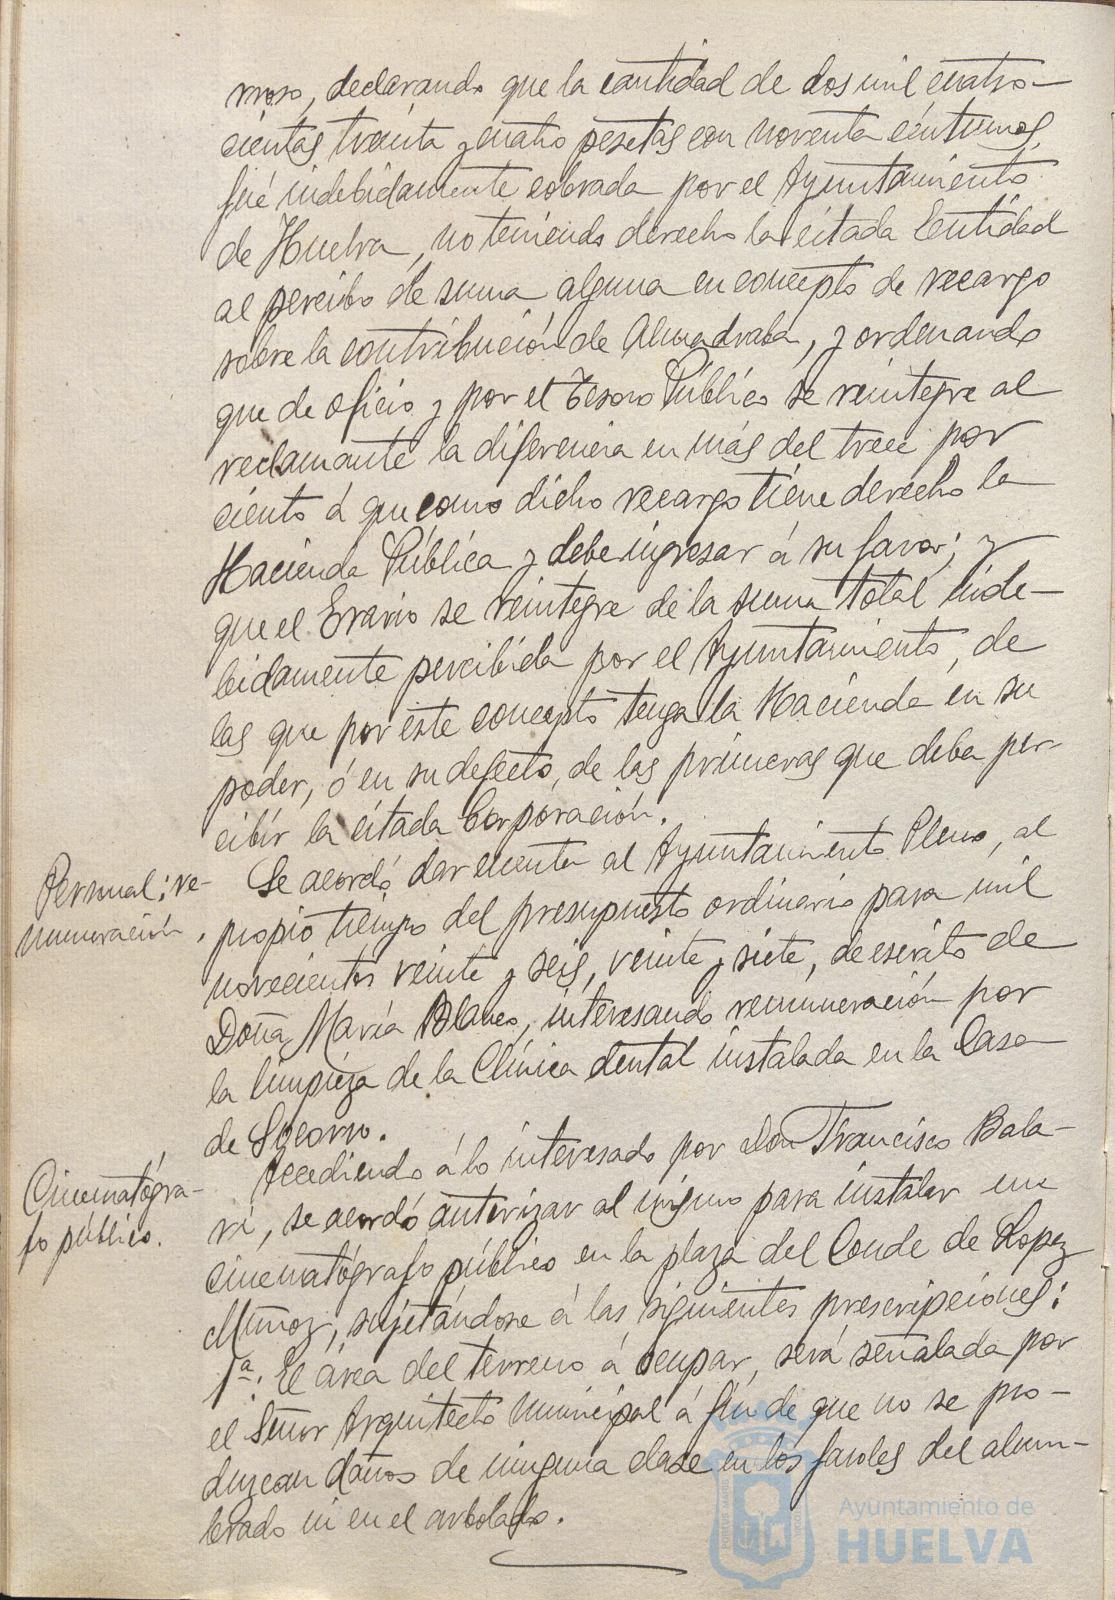 moso, declarando que la cantidad de dos mil cuatro-
cientas treinta y cuatro pesetas con noventa céntimos,
fué indebidamente cobrada por el Ayuntamiento
de Huelva, no teniendo derecho la citada Entidad
al percibo de suma alguna en concepto de recargo
sobre la contribución de Almadraba, y ordenando
que de oficio y por el Tesoro Público se reintegre al
reclamante la diferencia en más del trece por
ciento á que como dicho recargo tiene derecho la
Hacienda Pública y debe ingresar á su favor; y
que el Erario se reintegre de la suma total inde-
bidamente percibida por el Ayuntamiento, de
las que por este concepto tenga la Hacienda en su
poder, ó en su defecto, de las primeras que deba per-
cibir la citada Corporación.
Personal; re-
muneración.
Se acordó dar cuenta al Ayuntamiento Pleno, al
propio tiempo del presupuesto ordinario para mil
novecientos veinte y seis, veinte y siete, de escrito de
Doña María Blanco, interesando remuneración por
la limpieza de la Clínica dental instalada en la Casa
de Socorro.
Cinematógra-
fo público.
Accediendo á lo interesado por Don Francisco Bala-
rí, se acordó autorizar al mismo para instalar un
cinematógrafo público en la plaza del Conde de Lopez
Muñoz, sujetándose á las siguientes prescripciones:
1ª. El área del terreno á ocupar, será señalada por
el Señor Arquitecto Municipal á fin de que no se pro-
duzcan daños de ninguna clase en los faroles del alum-
brado ni en el arbolado.
Ayuntamiento de
HUELVA